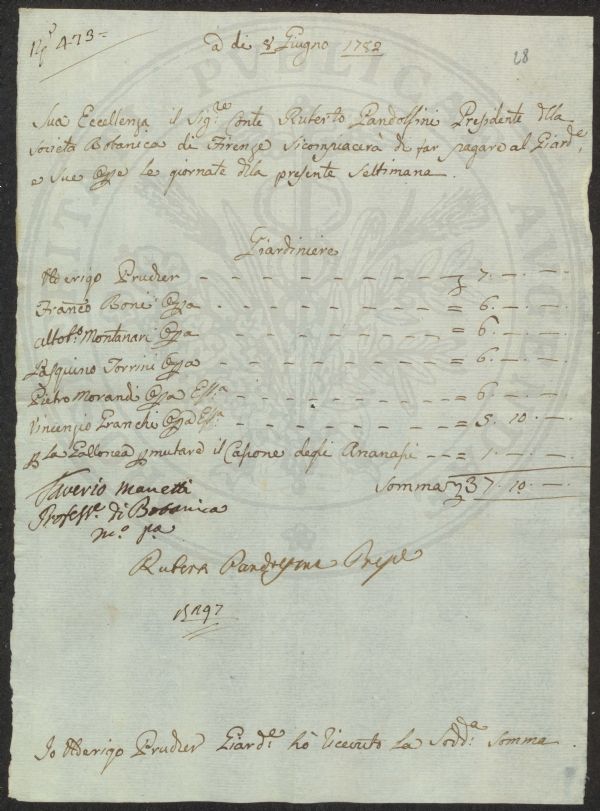 N.º 473 =
28
a di 8 Giugno 1782
Sua Eccellenza il Sig.re Conte Ruberto Pandolfini Presidente della
Società Botanica di Firenze si compiacerà di far pagare al Giard.e,
e Sue Opre le giornate della presente Settimana.
Giardiniere
Ulderigo Prucker - - - - - - - - - - = 7. — . —
Franco Boni Opa - - - - - - - - - - = 6. — . —
Montanari Opa - - - - - - - - - - = 6. — . —
Pasquino Torrini Opa - - - - - - - - - - = 6. — . —
Pietro Morandi Opa Ess.a - - - - - - - - - - = 6. — . —
Vincenzio Franchi Opa Ess.a - - - - - - - - - - = 5. 10. —
P. La Vallonea p mutare il Casone degli Ananassi - - = 1. — . —
Somma 37. 10. —
Saverio Manetti
Profess.e di Botanica
m.o pa
Ruberto Pandolfini Preste
Io Ulderigo Prucker Giard.e hò ricevuto la Sodd.a Somma.
PUBLICAE